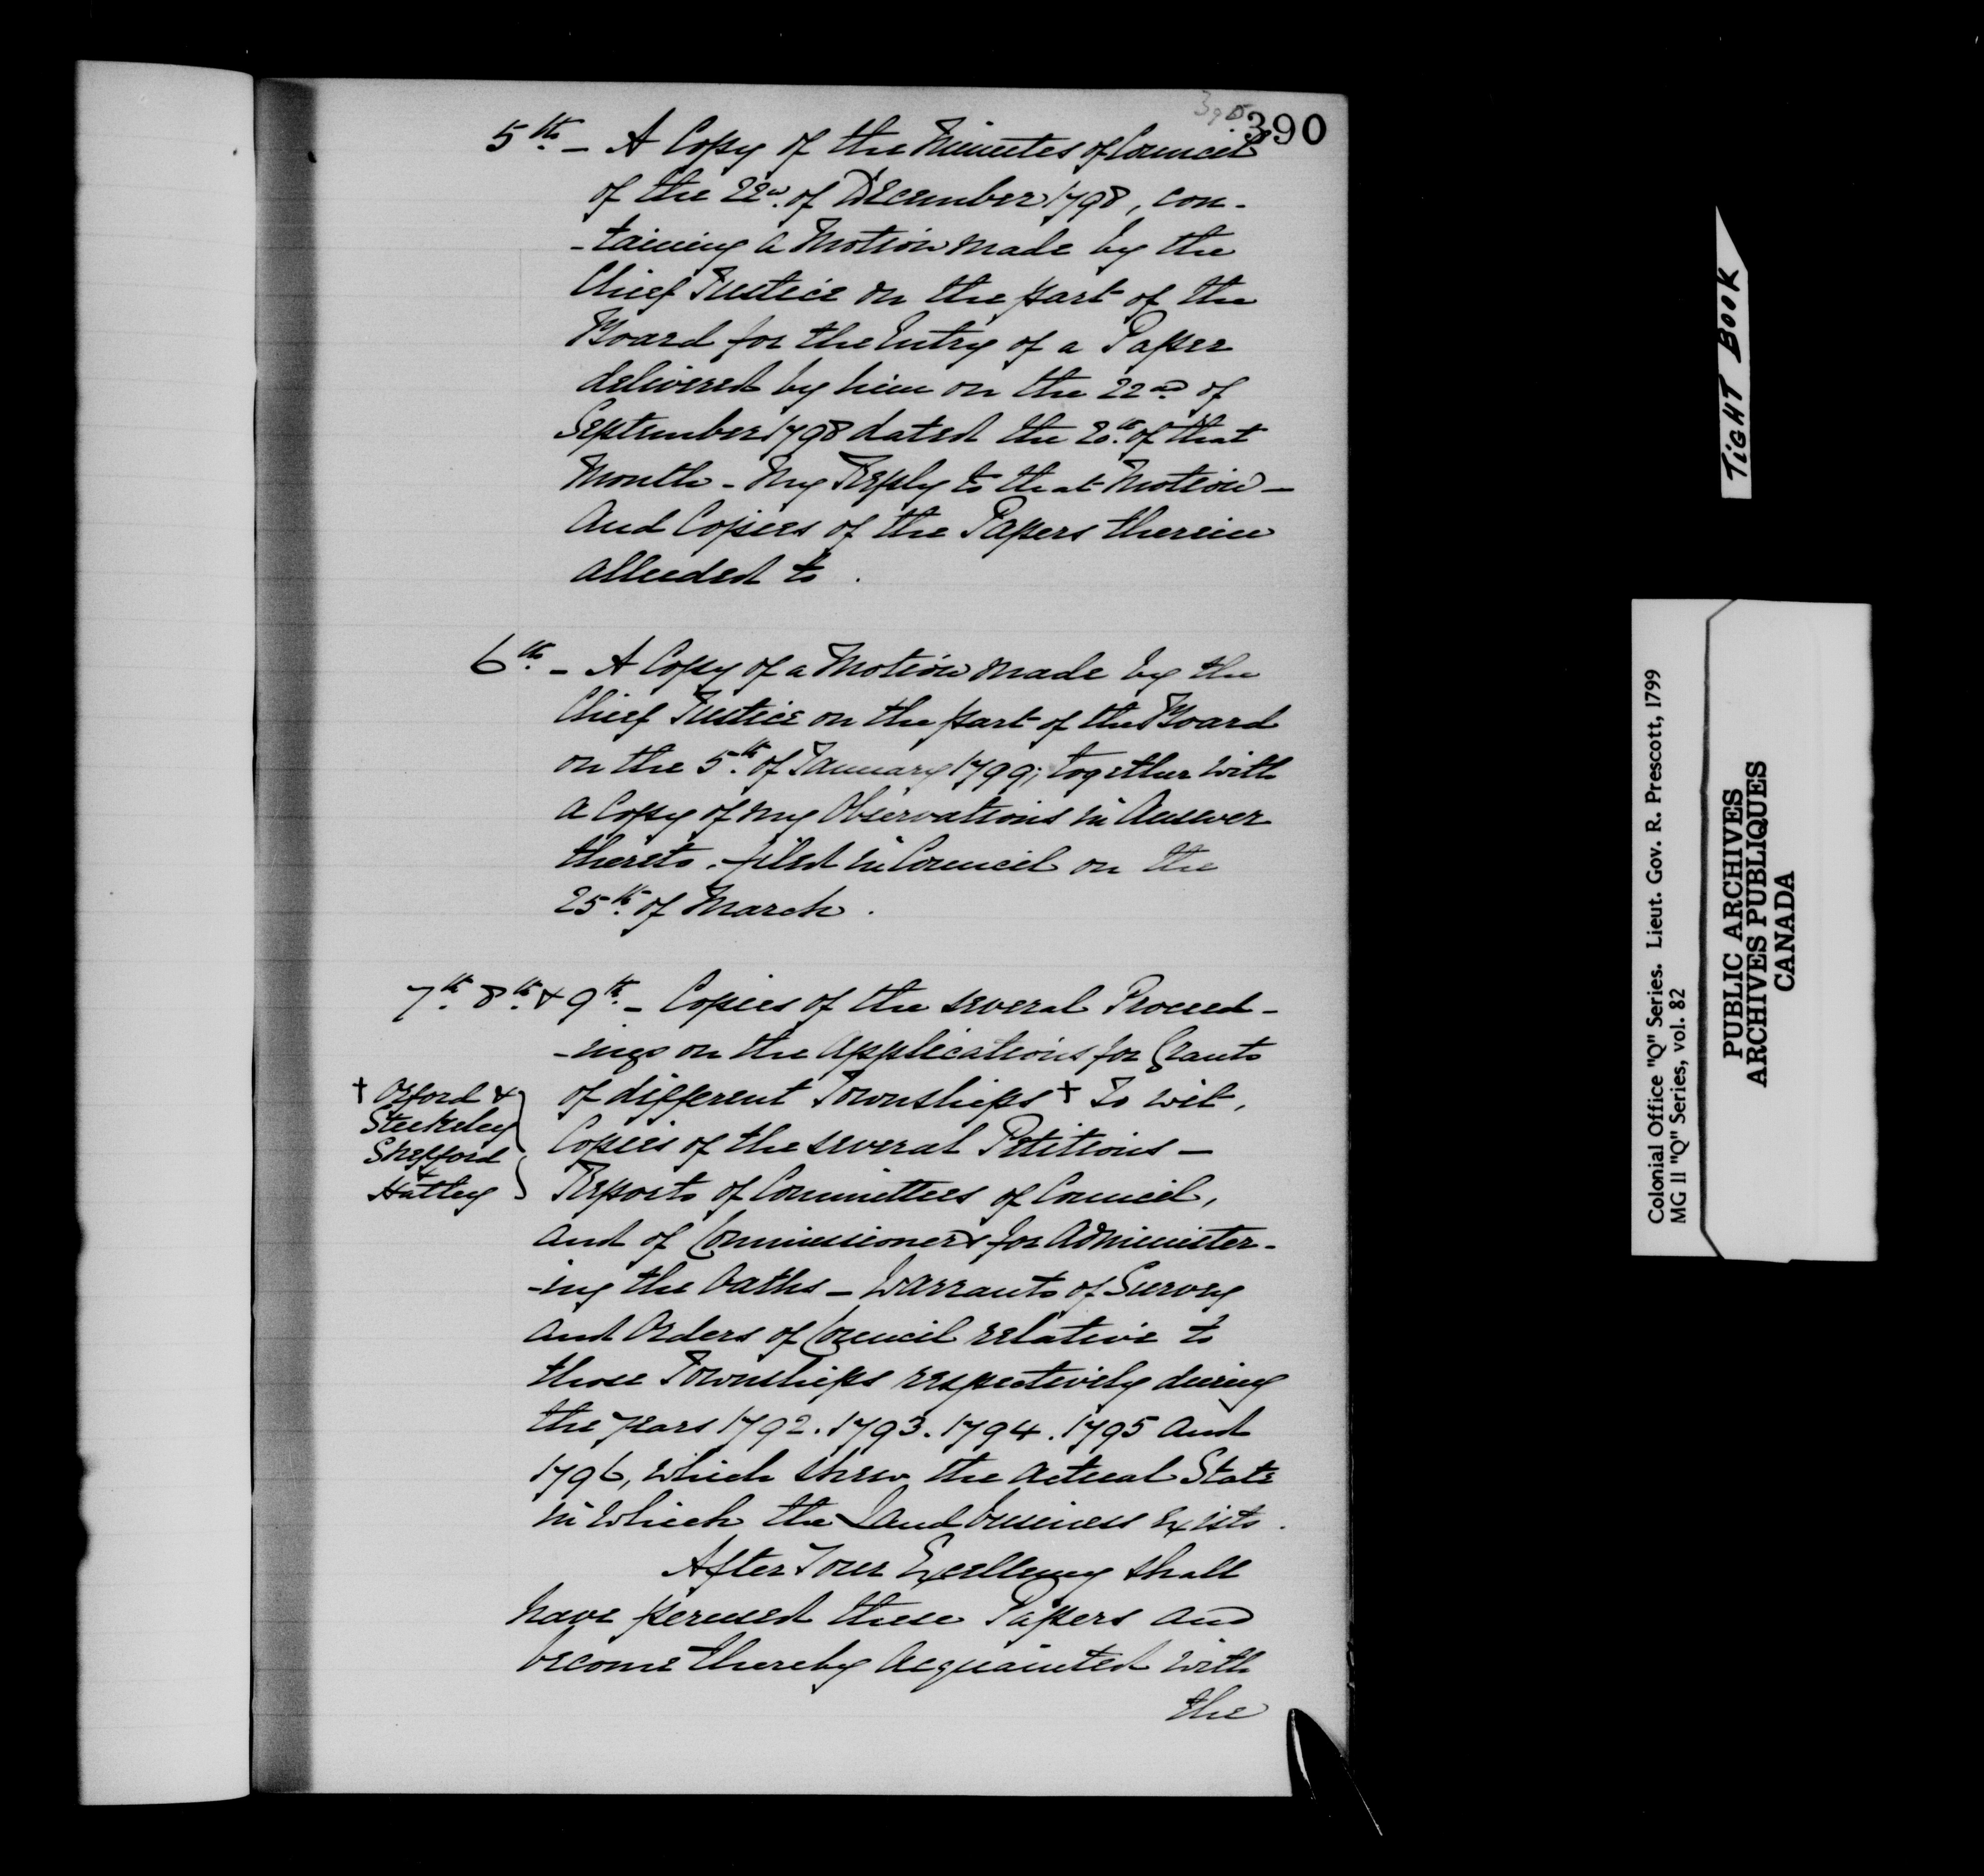 390
5th. – A Copy of the Minutes of Council
of the 22d. of December 1798, con-
-taining a Motion made by the
Chief Justice on the part of the
Board for the Entry of a Paper
delivered by him on the 22nd of
September 1798 dated the 20th. of that
Month – My Reply to that Motion –
And Copies of the Papers therein
alluded to .
6th. – A Copy of a Motion made by the
Chief Justice on the part of the Board
on the 5th. of January 1799; together with
a Copy of my Observations in Answer
thereto. filed in Council on the
25th. of March .
7th. 8th. & 9th. – Copies of the several Proceed-
-ings on the Applications for Grants
of different Townships + To wit,
+ Orford &
Stukeley
Shefford
&
Hatley
Copies of the several Petitions –
Reports of Committees of Council,
and of Commissioners for Administer-
-ing the Oaths – Warrants of Survey
and Orders of Council relative to
those Townships respectively during
the years 1792. 1793. 1794. 1795 and
1796, which shew the actual State
in which the Land business exists .
After Your Excellency shall
have perused these Papers and
become thereby acquainted with
the
TIGHT BOOK
Colonial Office "Q" Series. Lieut. Gov. R. Prescott, 1799
MG II "Q" Series, vol. 82
PUBLIC ARCHIVES
ARCHIVES PUBLIQUES
CANADA